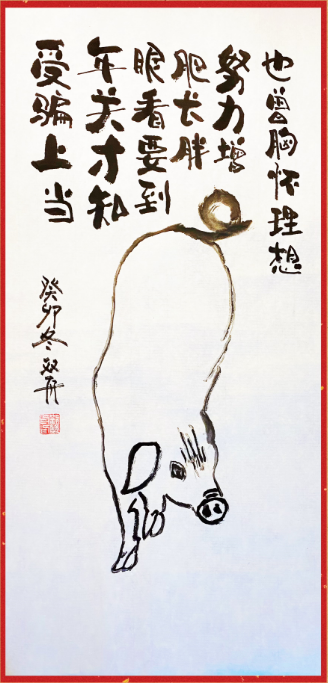 也曾胸怀理想
努力增
肥长胖
眼看要到
年关才知
受骗上当
癸卯冬双